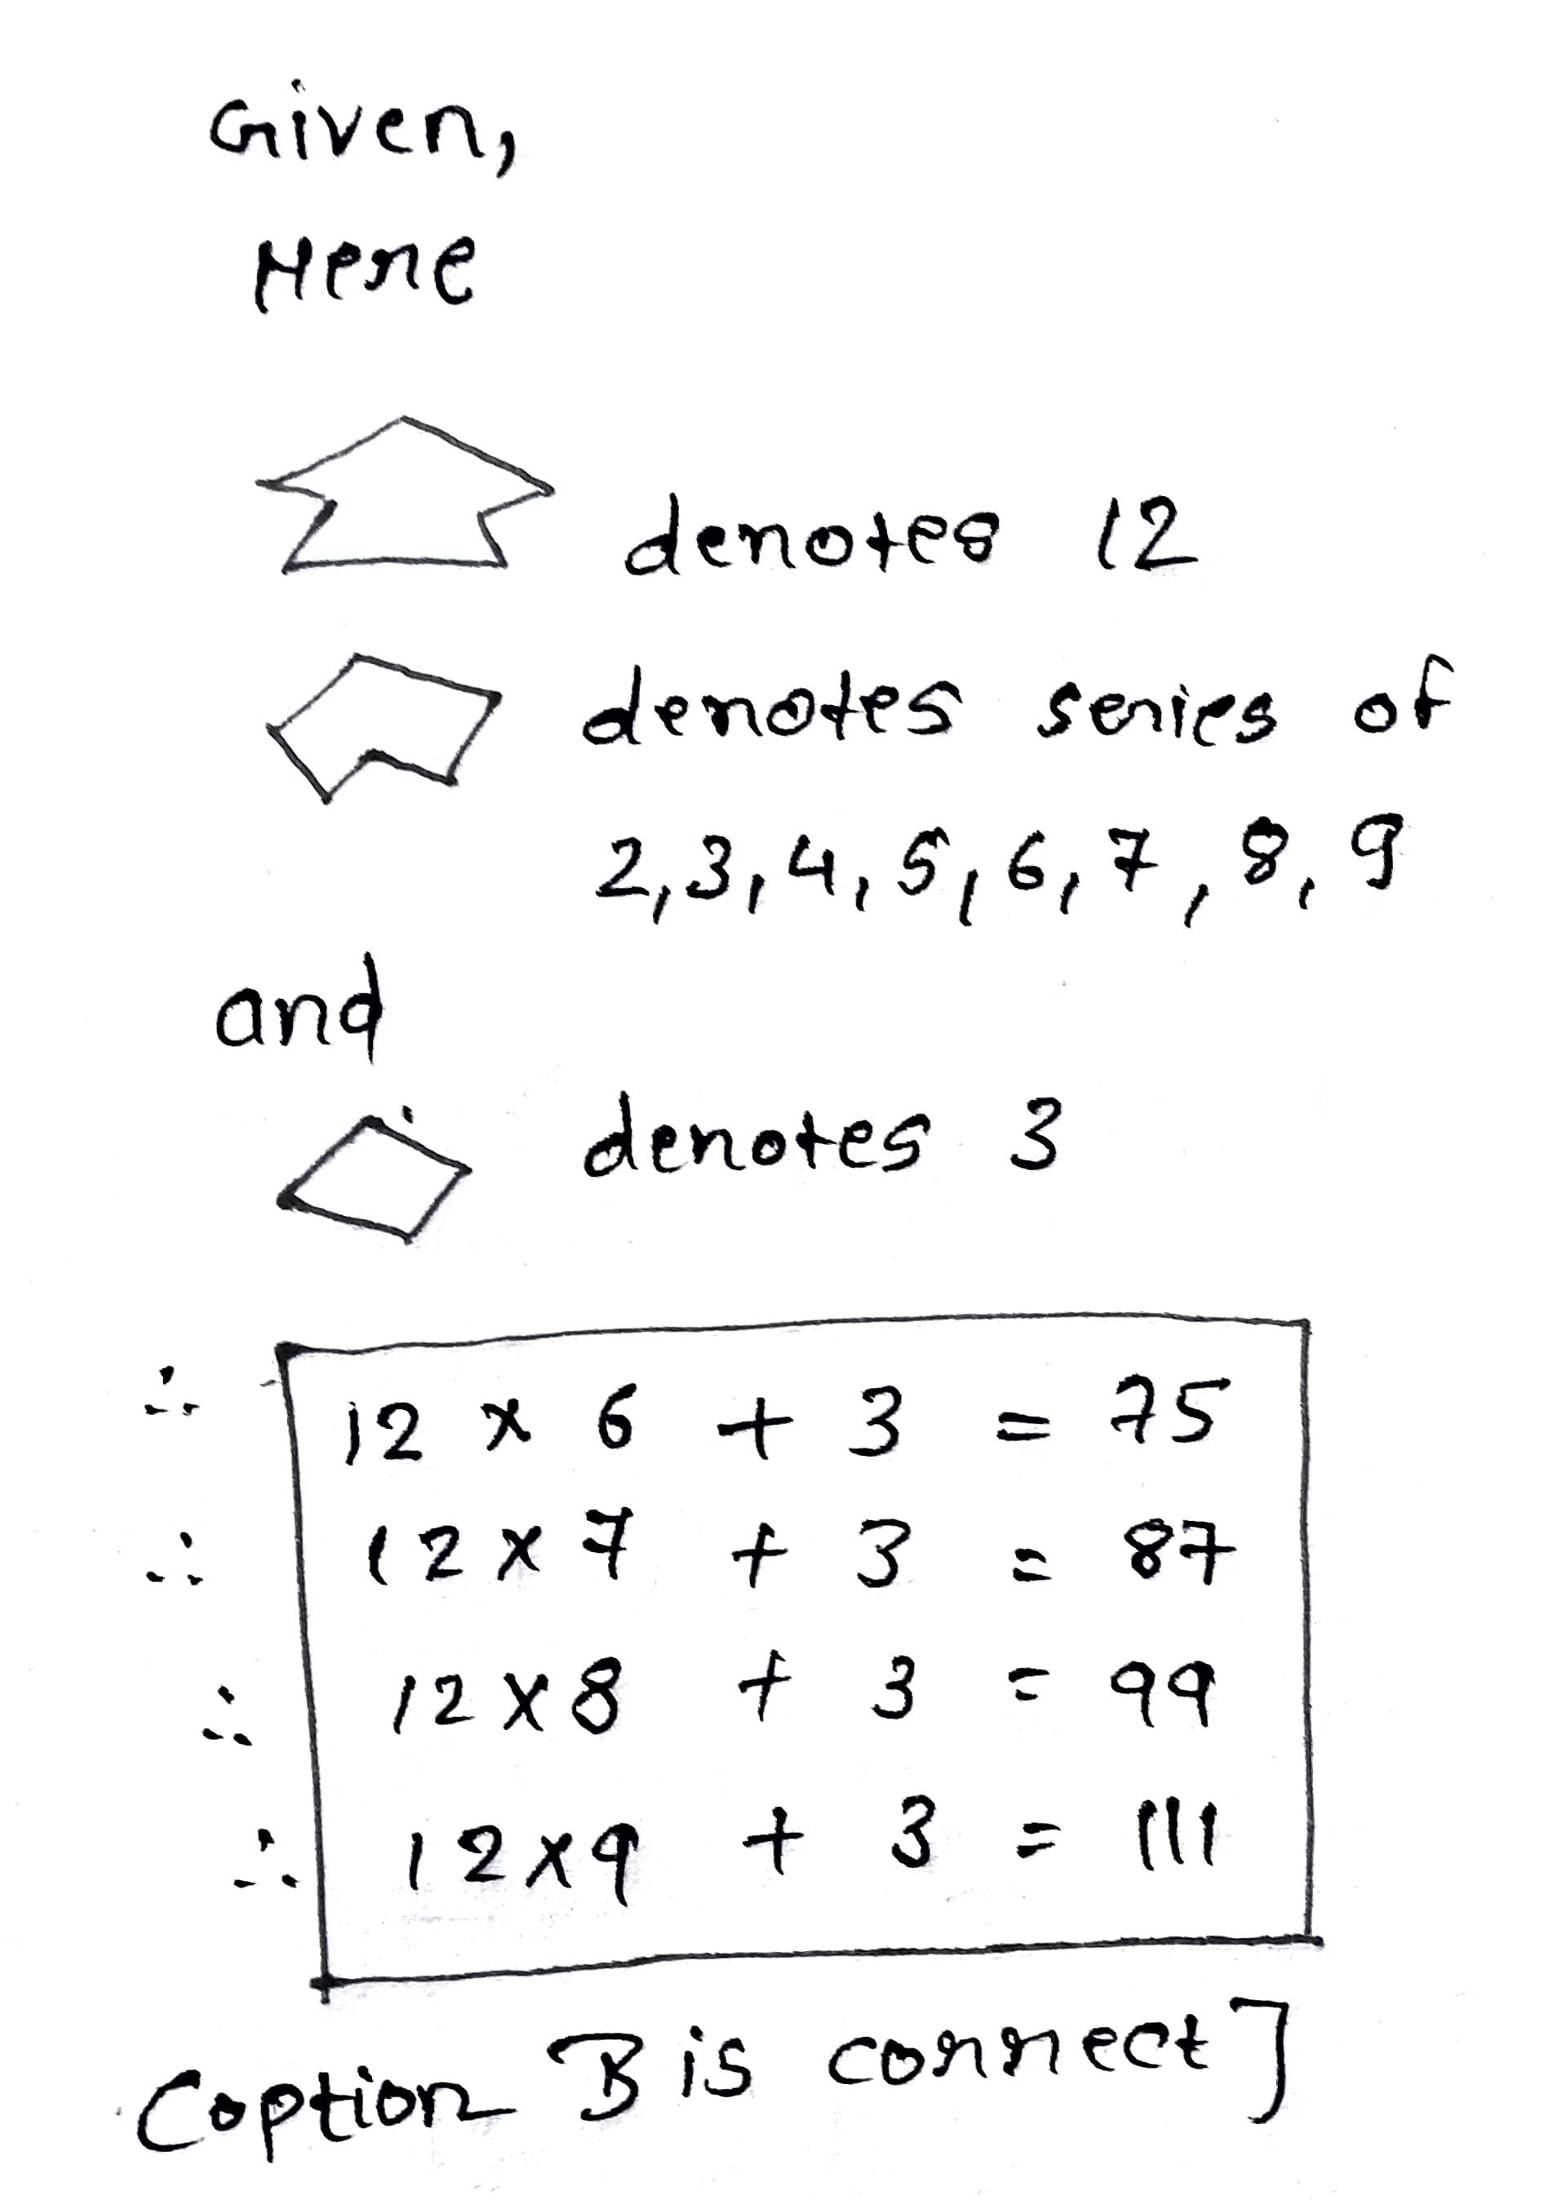 Given,
Here
denotes 12
denotes series of
2,3,4,5,6,7,8,9
and
denotes 3
∴ 12 x 6 + 3 = 75
∴ 12 x 7 + 3 = 87
∴ 12 x 8 + 3 = 99
∴ 12 x 9 + 3 = 111
[option B is correct]